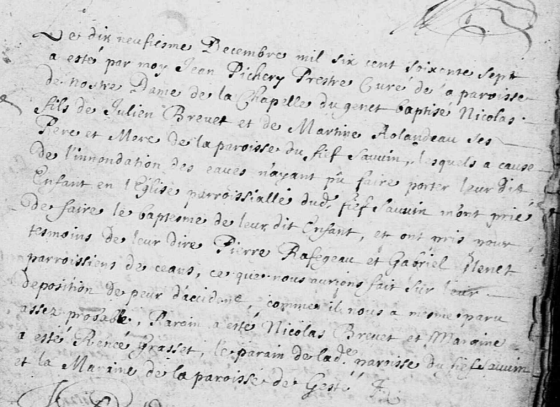 Le dix neufiesme Decembre mil six cent soixente sept
a esté par moy Jean Pichery Prestre Cure de la paroisse
de nostre Dame de la Chapelle du genet baptisé Nicolas
fils de Julien Brevet et de Martine Rolandeau ses
Pere et Mere de la paroisse du fief Sauvin, lesquels a cause
de l'innondation des eaues nayant pû faire porter leur dit
Enfant en l'Eglise parroissialle dud. fief Sauvin m'ont prié
de faire le baptesme de leur dit Enfant, et ont pris pour
tesmoins de leur dire Pierre Rafegeau et Gabriel
parroissiens de ceans, ce que nous aurions fait sur leur
deposition de peur d'accident, comme il nous a mesme paru
assez probable, Parain a esté Nicolas Brevet et Maraine
a esté Renée Grasset, le parain de lad. paroisse du fief Sauvin
et la Maraine de la paroisse de Gesté